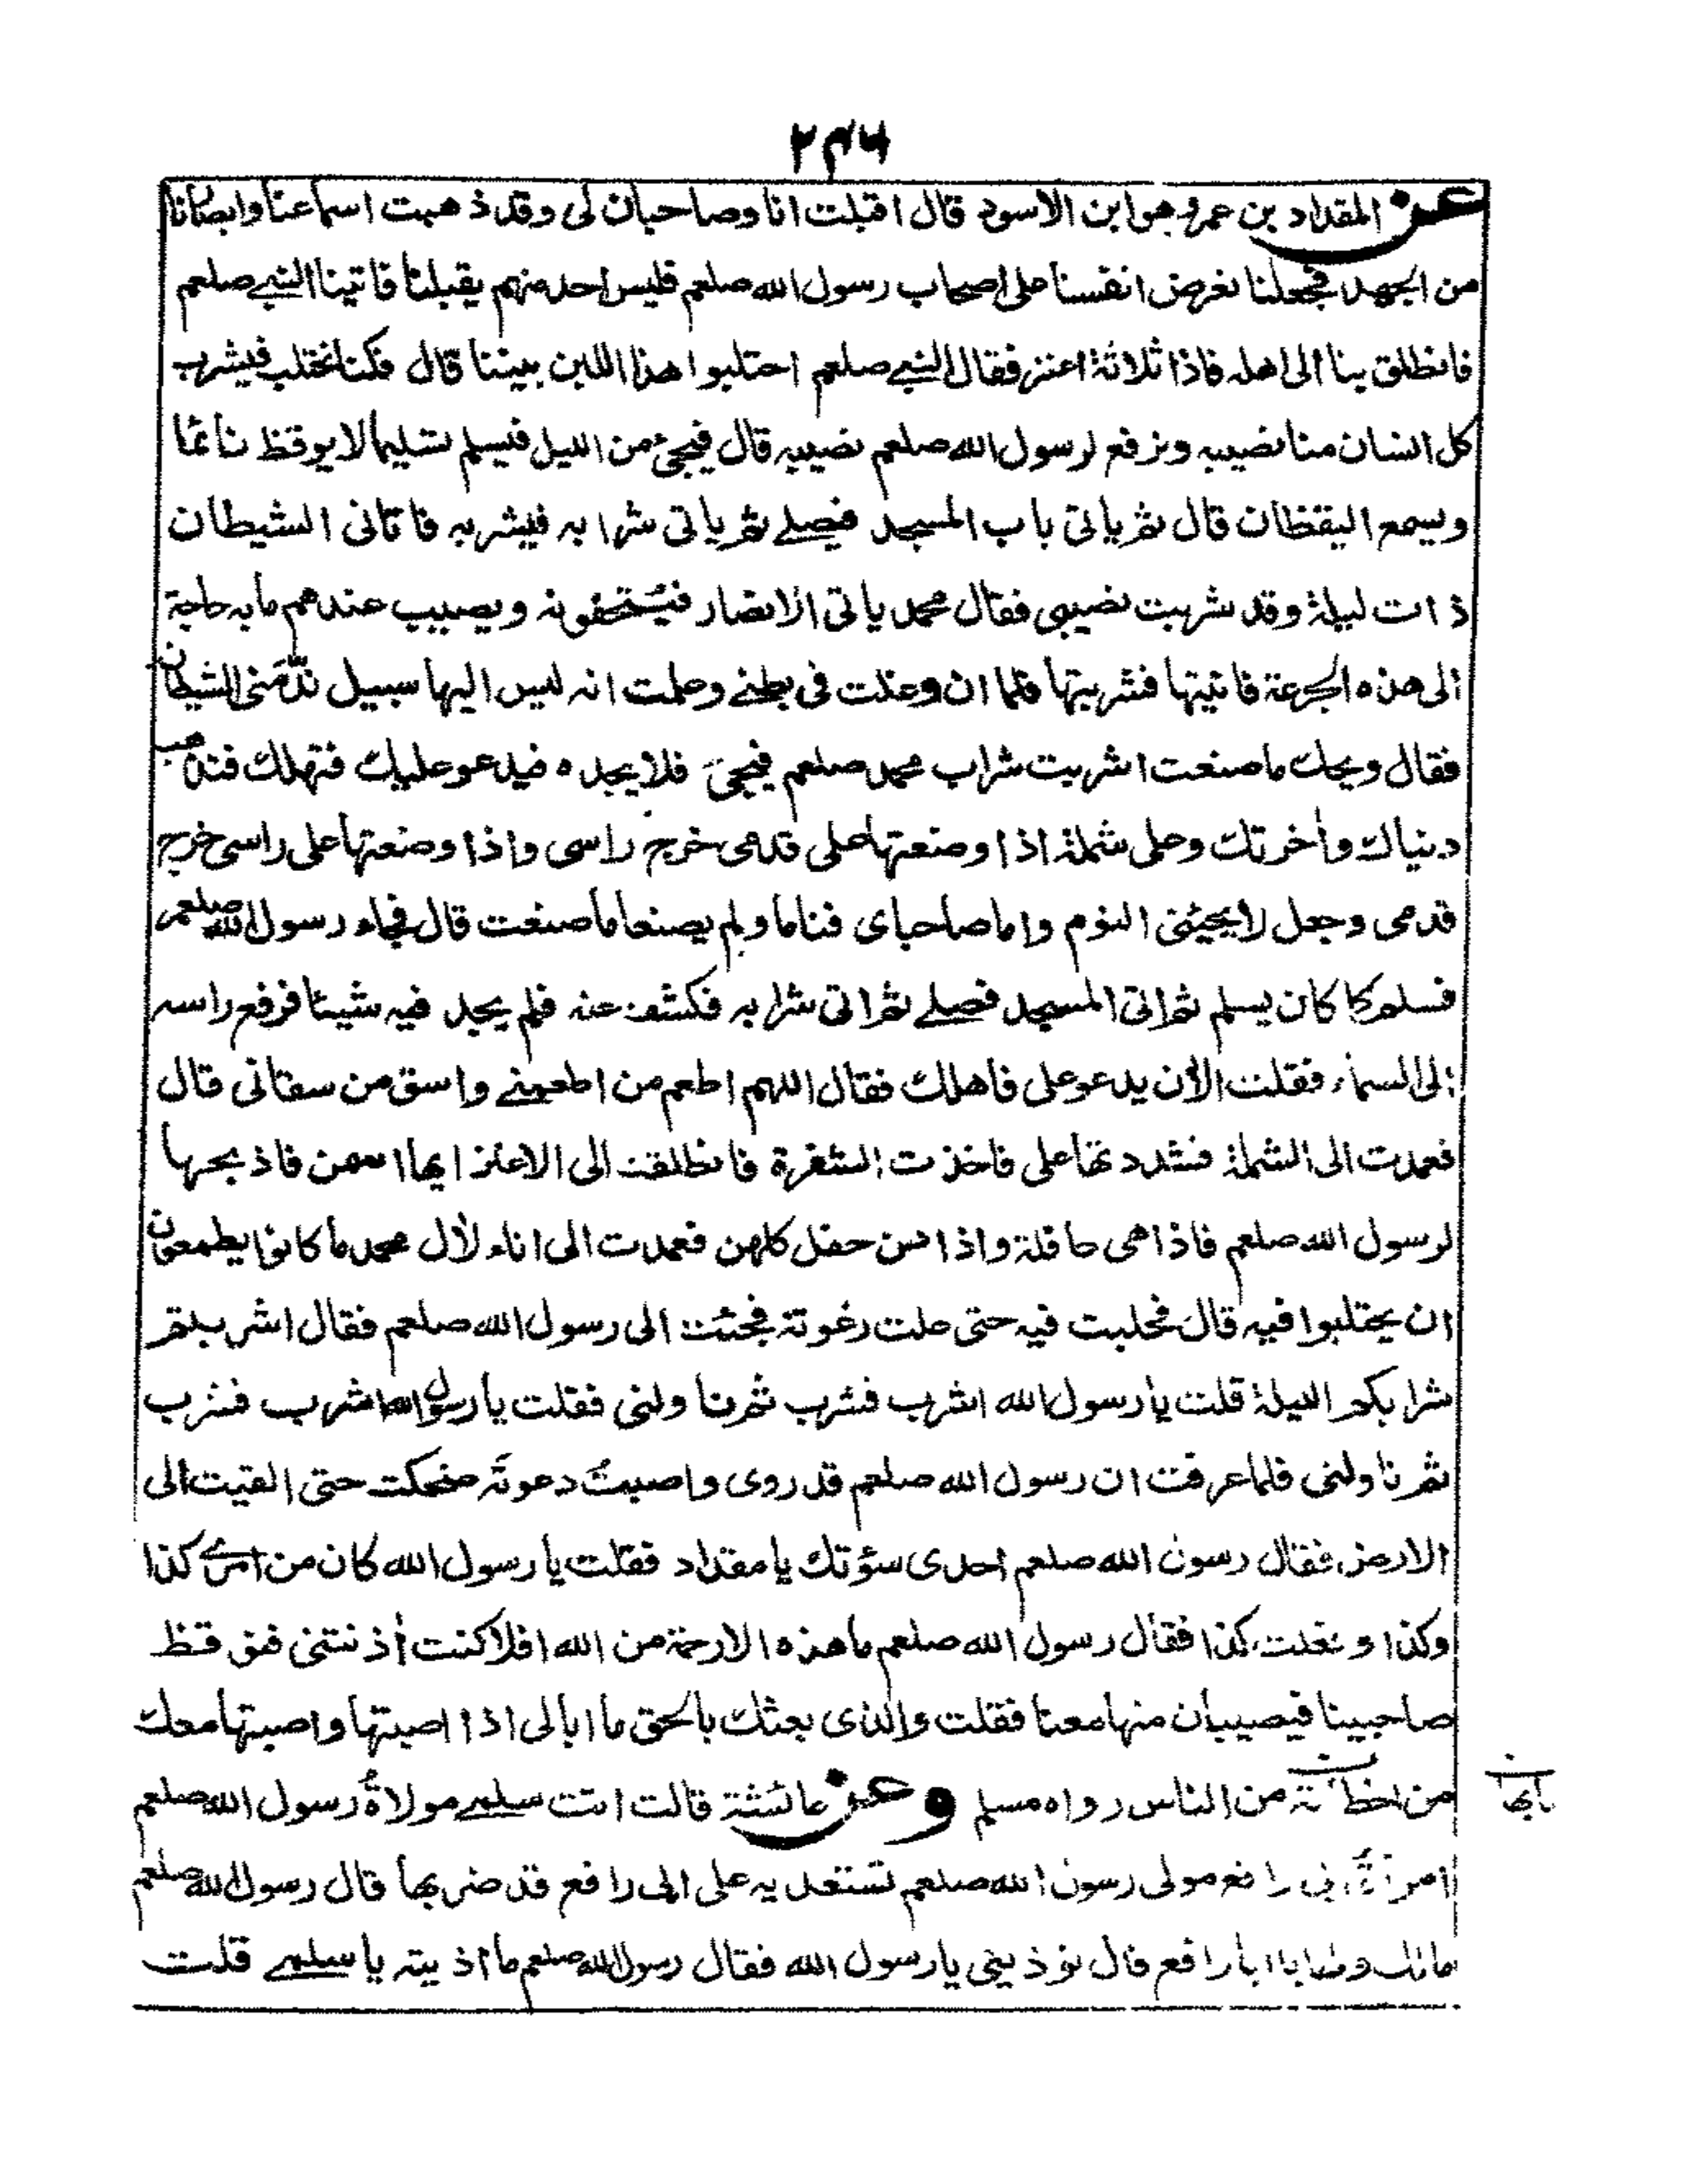 ۲۳۶
عن المقداد بن عمرو هو ابن الاسود قال اقبلت انا وصاحبان لى وقد ذهبت اسماعنا وابصارنا
من الجهد فجعلنا نعرض انفسنا على اصحاب رسول الله صلعم فليس احد منهم يقبلنا فاتينا النبي صلعم
فانطلق بنا الى اهله فاذا ثلاثة اعنز فقال النبي صلعم احتلبوا هذا اللبن بيننا قال فكنا نحتلب فيشرب
كل انسان منا نصيبه ونرفع لرسول الله صلعم نصيبه قال فيجئ من الليل فيسلم تسليما لا يوقظ نائما
ويسمع اليقظان قال ثم ياتى باب المسجد فيصلي ثم ياتى شرابه فيشربه فاتانى الشيطان
ذات ليلة وقد شربت نصيبى فقال محمد ياتى الانصار فيتحفونه ويصيب عندهم ما به حاجة
الى هذه الجرعة فاتيتها فشربتها فلما ان وغلت فى بطني وعلمت انه ليس اليها سبيل ندّمنى الشيطان
فقال ويحك ما صنعت اشربت شراب محمد صلعم فيجئ فلا يجده فيدعو عليك فتهلك فتذهب
دنياك واخرتك وعلى شملة اذا وضعتها على قدمى خرج راسى واذا وضعتها على راسى خرج
قدمى وجعل لا يجيئنى النوم واما صاحباى فناما ولم يصنعا ما صنعت قال فجاء رسول الله صلعم
فسلم كما كان يسلم ثم اتى المسجد فصلي ثم اتى شرابه فكشف عنه فلم يجد فيه شيئا فرفع راسه
الى السماء فقلت الآن يدعو على فاهلك فقال اللهم اطعم من اطعمني واسق من سقانى قال
فعمدت الى الشملة فشددتها على فاخذت الشفرة فانطلقت الى الاعنز ايها اسمن فاذبحها
لرسول الله صلعم فاذا هى حافلة واذا هن حفل كلهن فعمدت الى اناء لآل محمد ما كانوا يطمعون
ان يحتلبوا فيه قال فحلبت فيه حتى علت رغوته فجئت الى رسول الله صلعم فقال اشربتم
شرابكم الليلة قلت يا رسول الله اشرب فشرب ثم ناولنى فقلت يا رسول الله اشرب فشرب
ثم ناولنى فلما عرفت ان رسول الله صلعم قد روى واصبت دعوته ضحكت حتى القيت الى
الارض فقال رسول الله صلعم احدى سؤتك يا مقداد فقلت يا رسول الله كان من امرى كذا
وكذا وفعلت كذا فقال رسول الله صلعم ما هذه الا رحمة من الله افلا كنت أذنتنى فنوقظ
صاحبينا فيصيبان منها معنا فقلت والذى بعثك بالحق ما ابالى اذا اصبتها واصبتها معك
من اخطأته من الناس رواه مسلم وعن عائشة قالت اتت سلمي مولاة رسول الله صلعم
امرأة ابى رافع مولى رسول الله صلعم تستعديه على ابى رافع قد ضربها قال رسول الله صلعم
مالك ولها يا ابا رافع قال تؤذينى يا رسول الله فقال رسول الله صلعم ما أذيته يا سلمي قلت